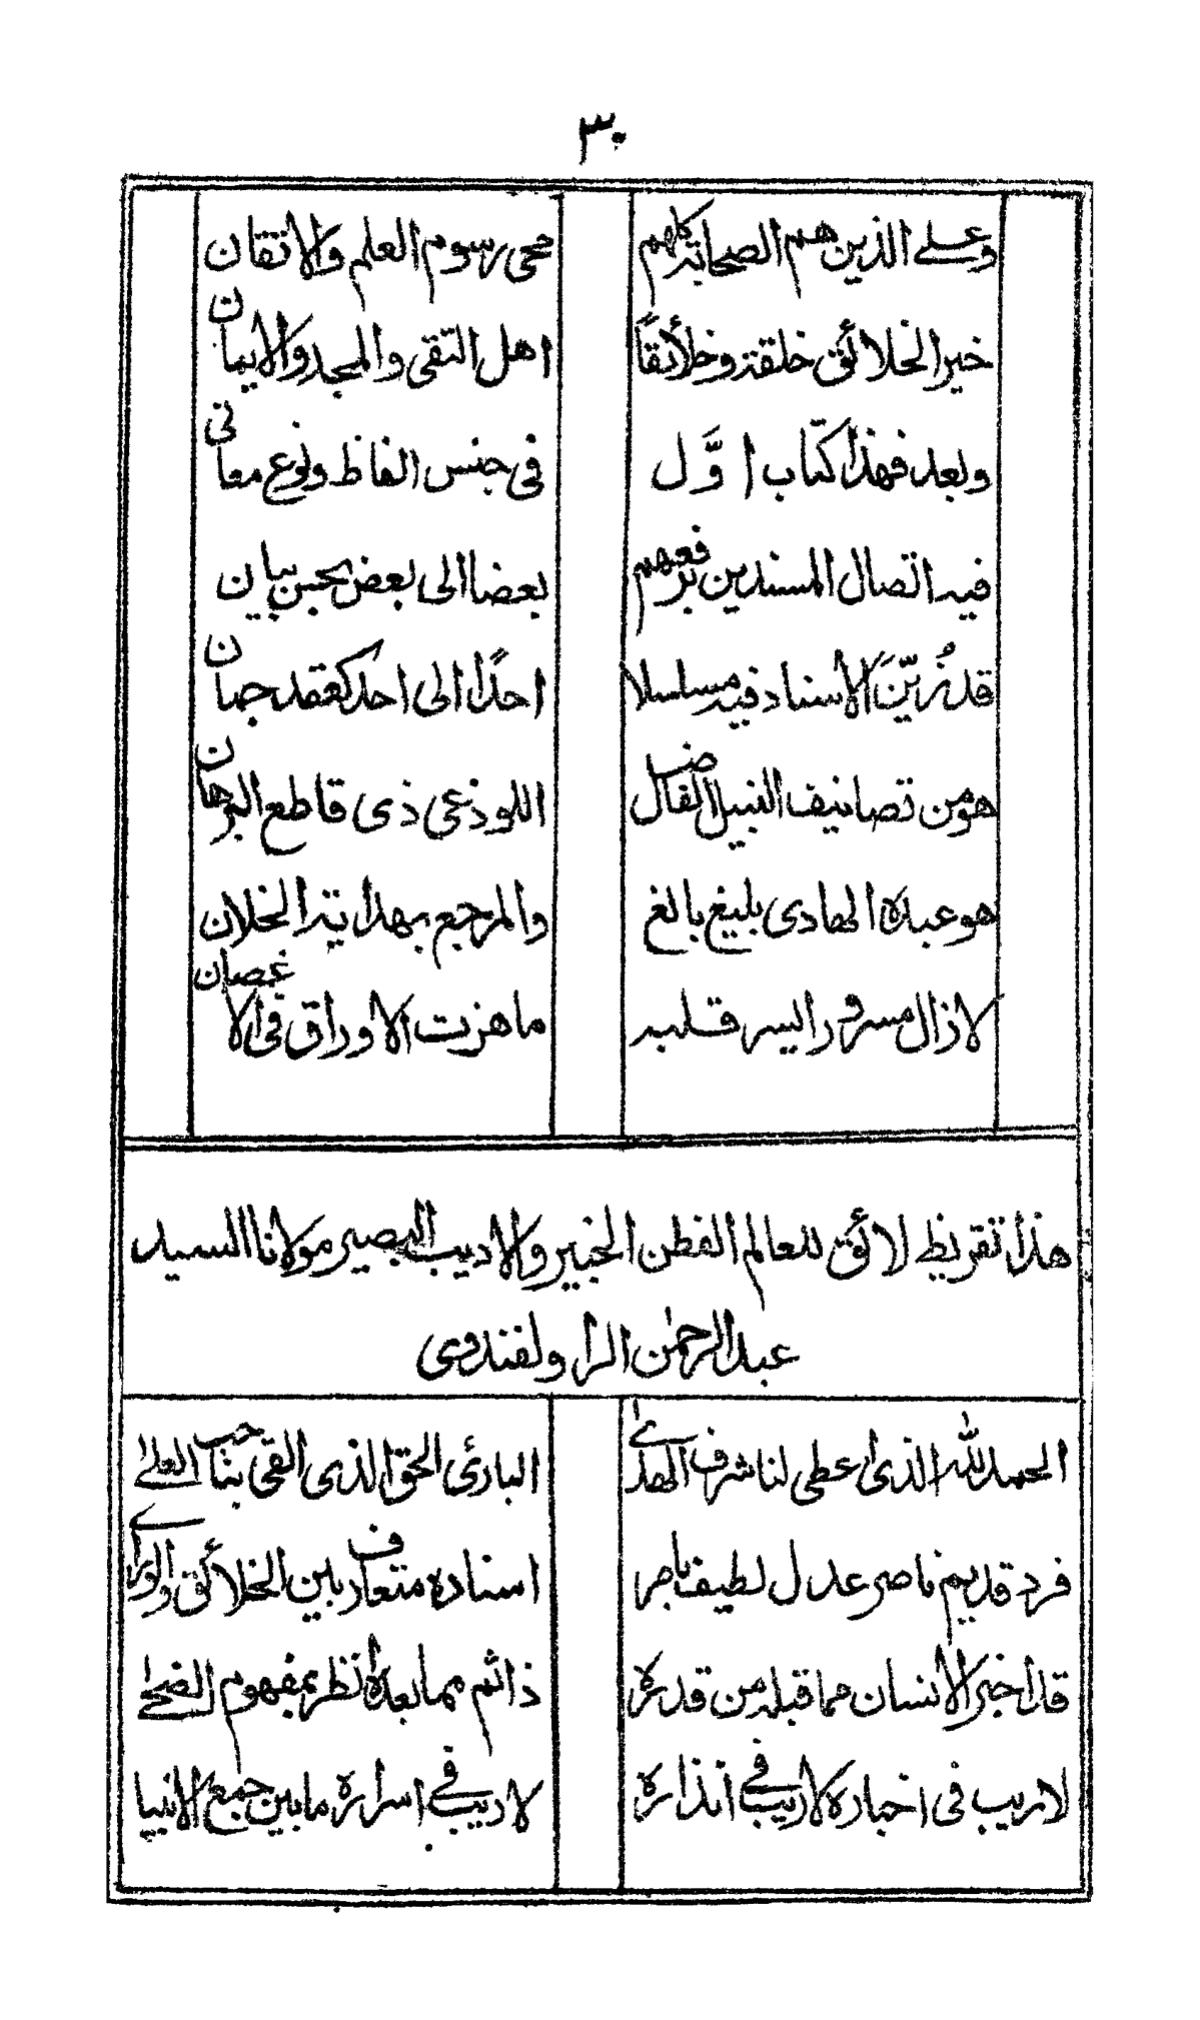 ٣٠
وعلى الذين هم الصحابة كلهم محى رسوم العلم والاتقان
خير الخلائق خلقة وخلأئقاً اهل التقى والمجد والايمان
وبعد فهذا كتاب اوَّل فى جنس الفاظ ونوع معانى
فيه اتصال المسندين برفعهم بعضا الى بعض بحسن بيان
قد زُيّنَ الاسناد فيه مسلسلا احدًا الى احد كعقد جمان
هو من تصانيف النبيل الفاضل اللوذعى ذى قاطع البرهان
هو عبده الهادى بليغ بالغ والمرتجع بهداية الخلان
لازال مسرورا ليسر قلبه ماهزت الاوراق فى الاغصان
هذا تقريظ لائق للعالم الفطن الخبير والاديب البصير مولانا السيد
عبد الرحمٰن الراولفندوى
الحمد لله الذى اعطى لنا شرف الهدى البارئ الحق الذى القى بنا حب العلى
فرد قديم ناصر عدل لطيف ماجر استاده متعارف بين الخلائق والورى
قد اخبر الانسان مما قبله من قدرة ذائم مما بعده انظر بمفهوم الضحى
لاريب فى اخباره لاريب فى انذاره لاريب فى اسراره مابين جمع الانبيا